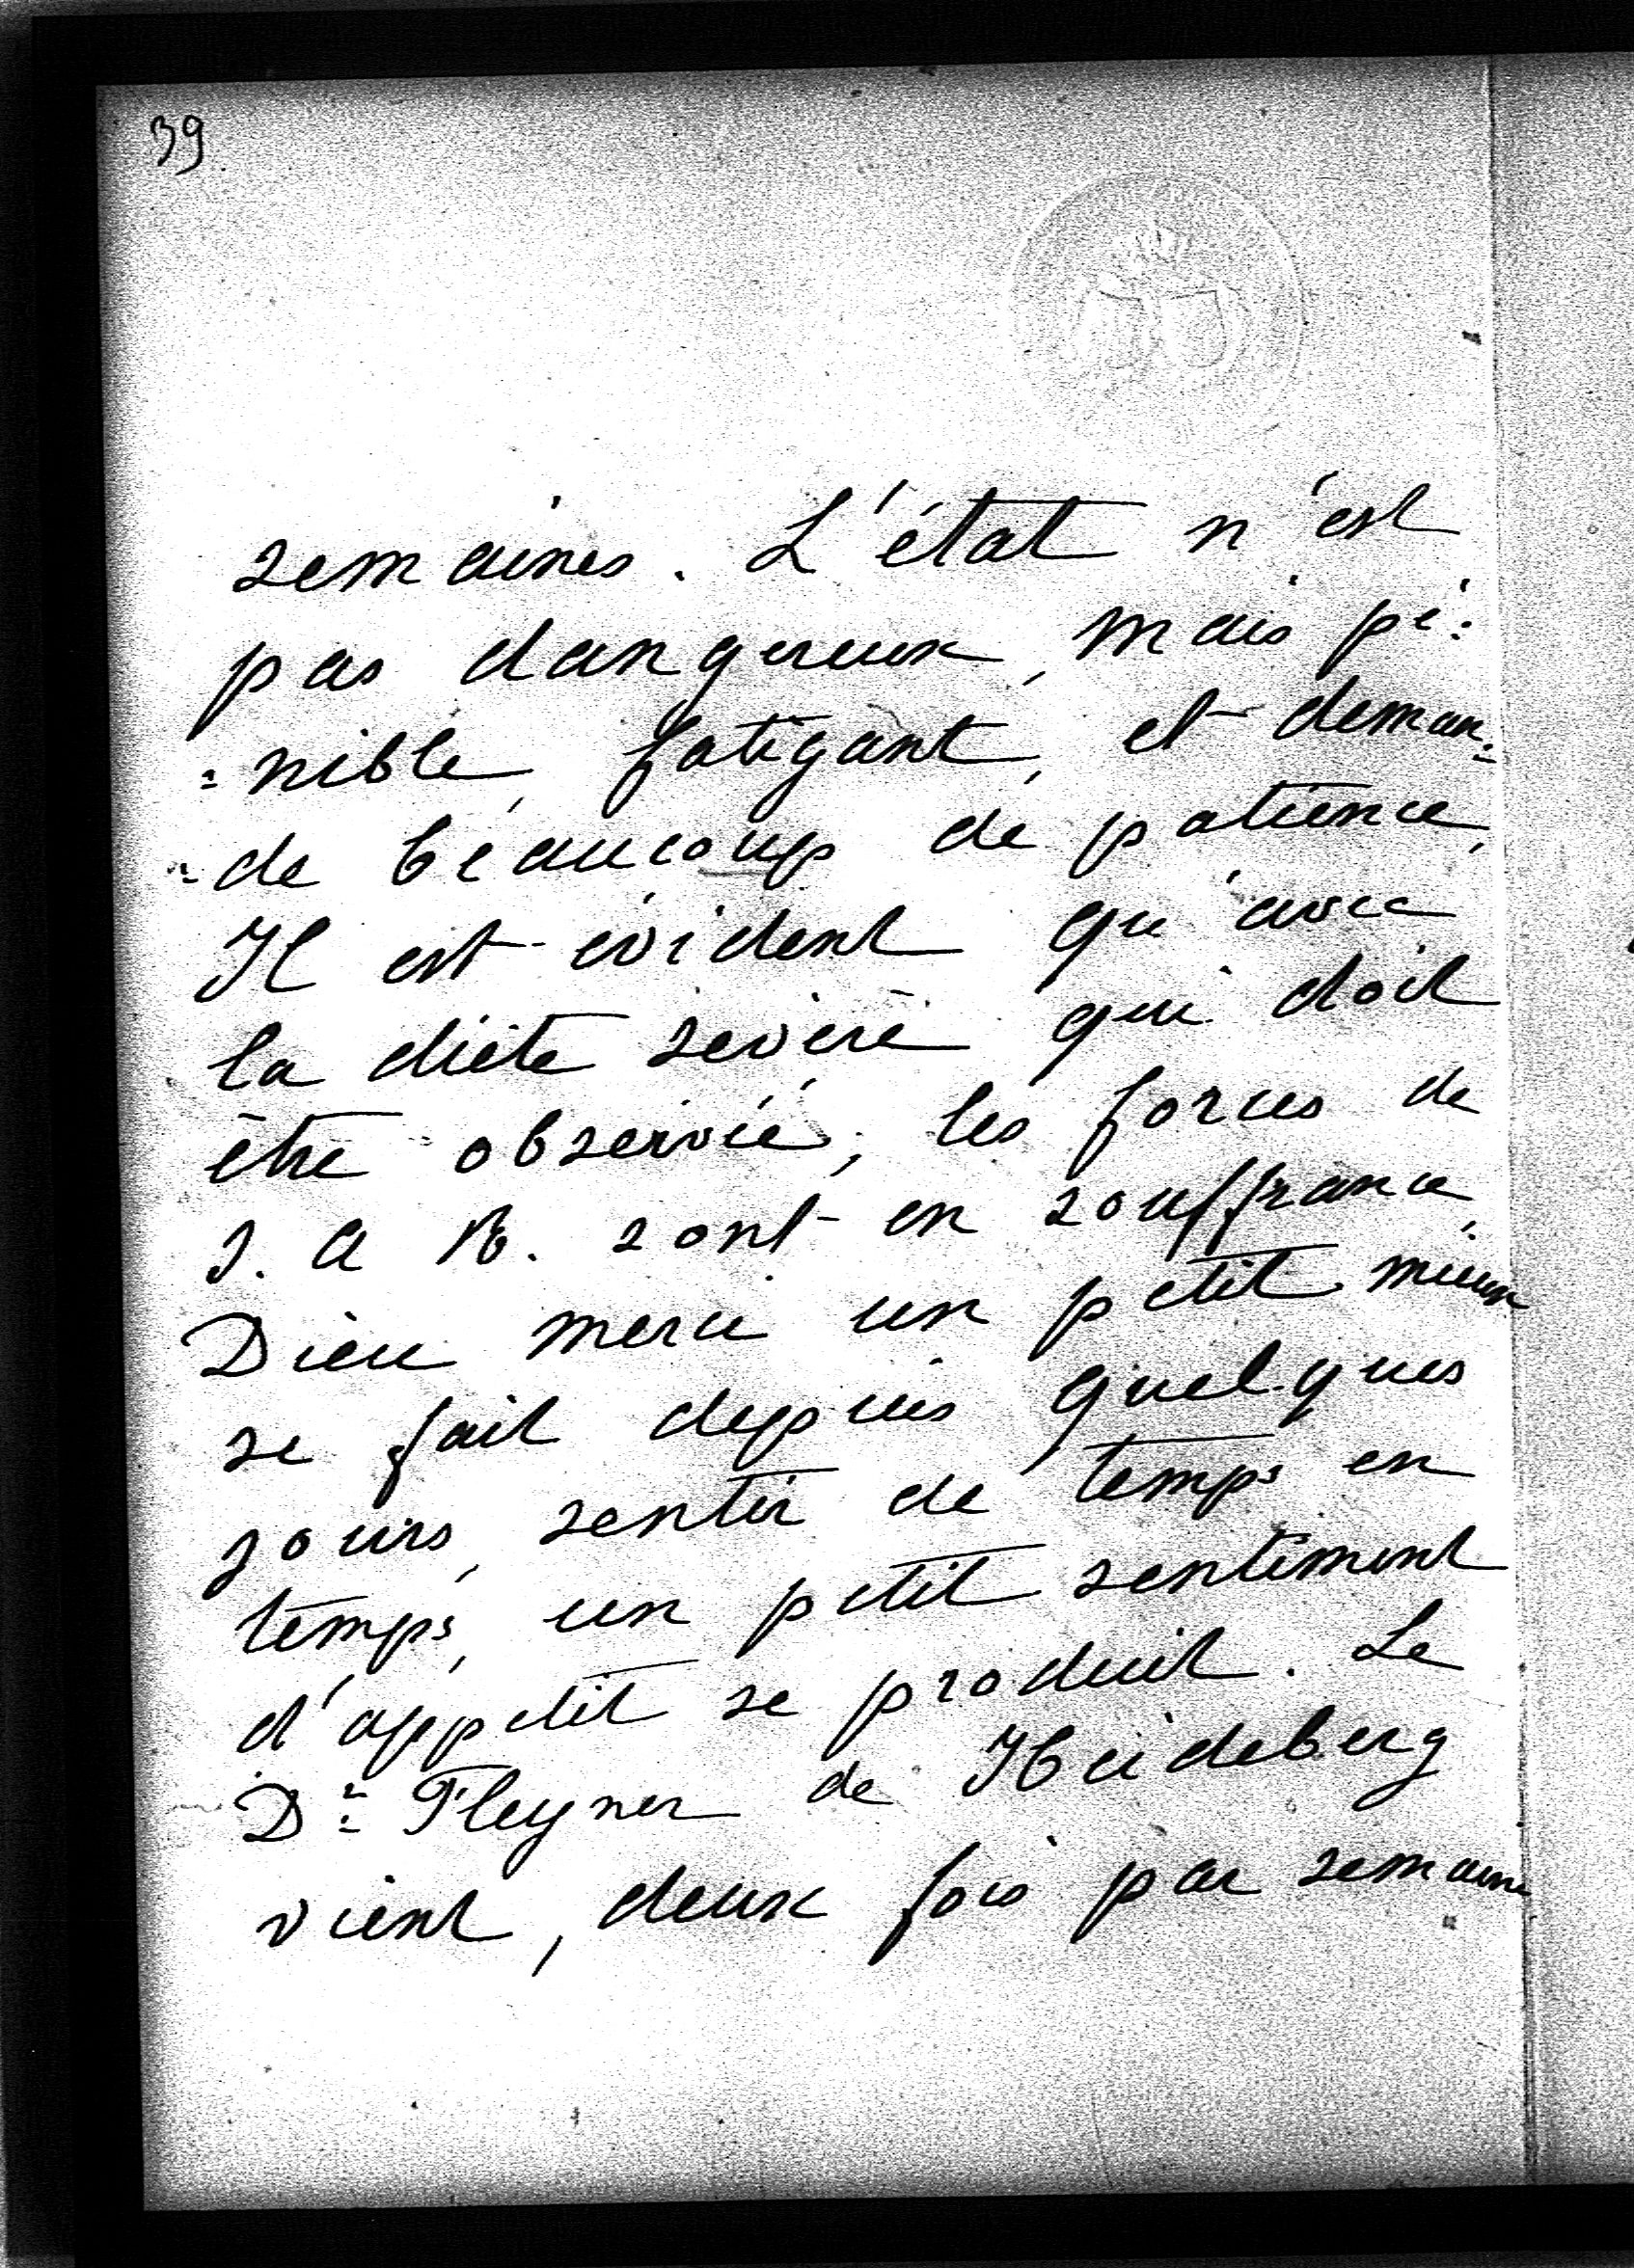 39
semaines. L'état n'est
pas dangereux, mais pé=
=nible, fatigant, et deman=
=de beaucoup de patience,
Il est évident qu'avec
la diète sévère qui doit
être observée, les forces de
S. A R. sont en souffrance,
Dieu merci un petit mieux
se fait depuis quelques
jours, sentir de temps en
temps, un petit sentiment
d'appetit se produit. Le
Dr= Fleyner de Heideberg
vient, deux fois par semaine